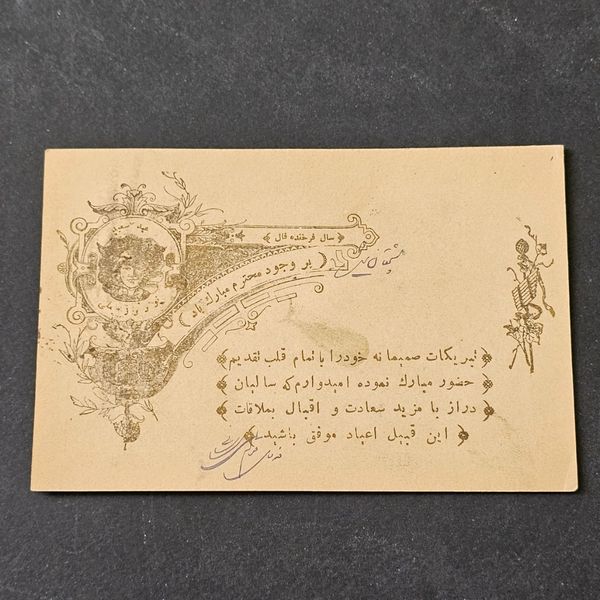 عید سعید
﴿ سال فرخنده فال ﴾
( بر وجود محترم مبارك باد )
﴿ تبریکات صمیمانه خودرا باتمام قلب تقدیم ﴾
﴿ حضور مبارك نموده امیدوارم که سالیان ﴾
﴿ دراز با مزید سعادت و اقبال بملاقات ﴾
﴿ این قبیل اعیاد موفق باشید ﴾